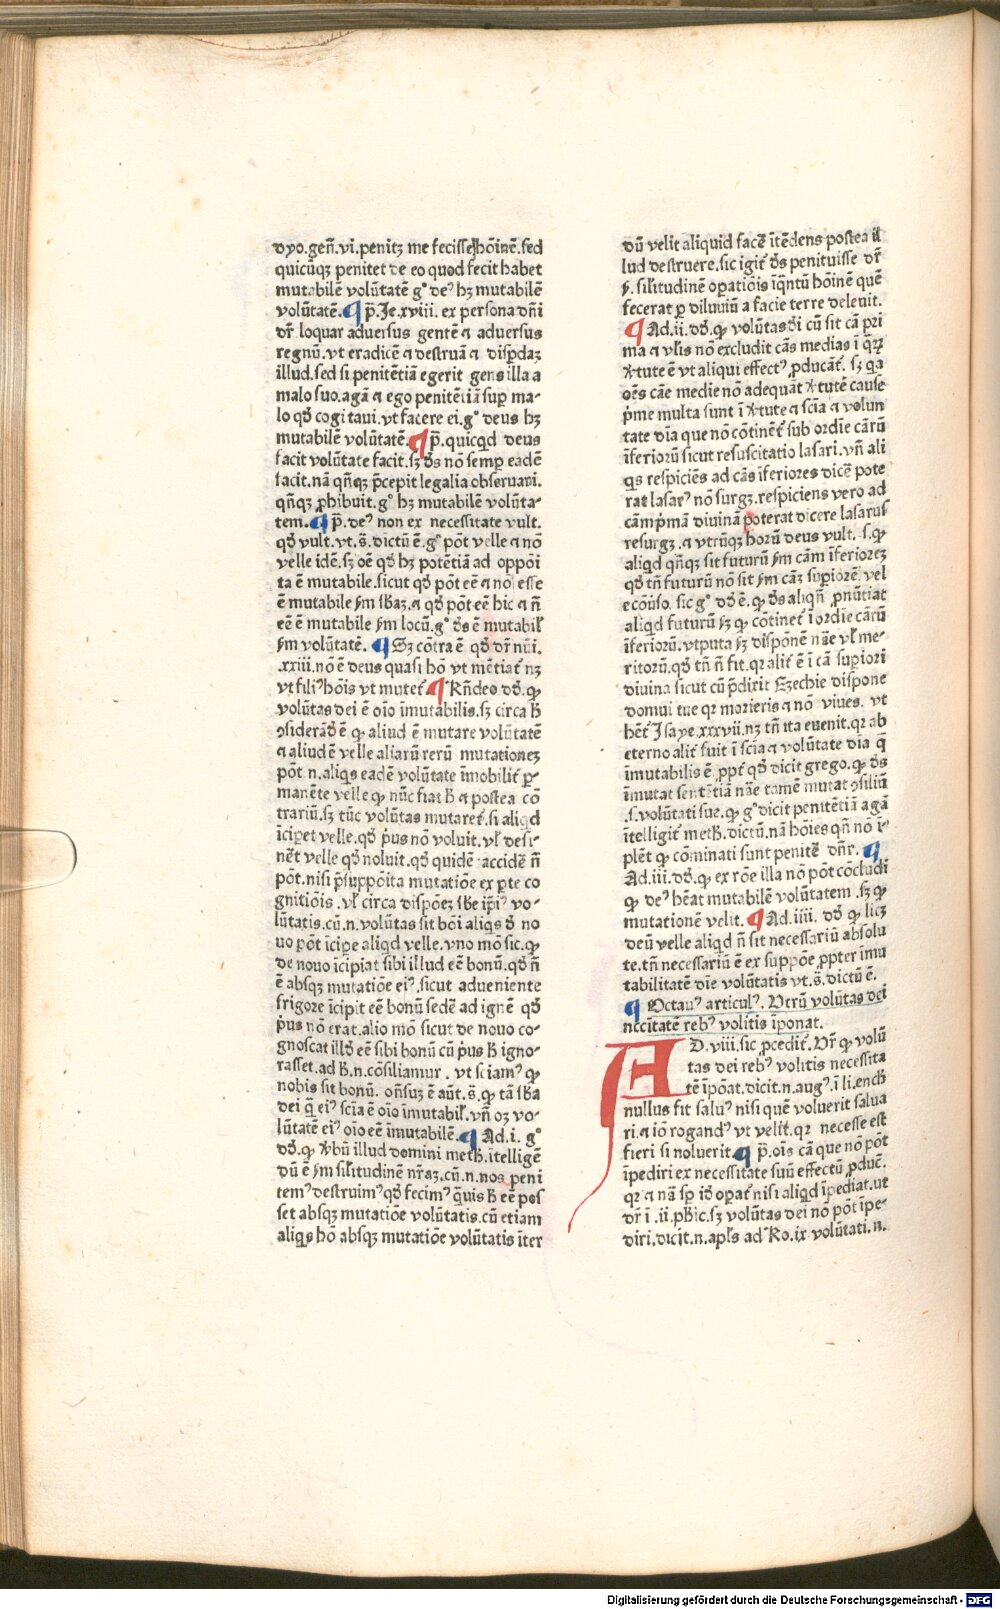 dyo.gen̄.vi.penitꝫ me fecisse hōinē.sed
quicūqꝫ penitet de eo quod fecit habet
mutabilē volūtatē gͦ deꝰ hꝫ mutabilē
volūtatē.¶ p̄.Je.xviii. ex persona dn̄i
dr̄ loquar aduersus gentē ⁊ aduersus
regnū.vt eradicē ⁊ destruā ⁊ disp̱daꝫ
illud.sed si penitētiā egerit gens illa a
malo suo.agā ⁊ ego penitētiā sup̱ ma-
lo qd̄ cogitaui.vt facere ei.gͦ deus hꝫ
mutabilē volūtatē.¶ p̄.quicqd deus
facit volūtate facit.sꝫ ds̄ nō semp̱ eadē
facit.nā qn̄qꝫ p̄cepit legalia obseruari.
qn̄qꝫ ꝓhibuit.gͦ hꝫ mutabilē volūta-
tem.¶ p̄.deꝰ non ex necessitate vult.
qd̄ vult.vt.s̄.dictū ē.gͦ pōt velle ⁊ nō
velle idē.sꝫ oē qd̄ hꝫ potētiā ad oppoi
ta ē mutabile.sicut qd̄ pōt eē ⁊ nō esse
ē mutabile ẜm sb̄aꝫ.⁊ qd̄ pōt eē hic ⁊ n̄
eē ē mutabile ẜm locū.gͦ ds̄ ē mutabil̄
ẜm volūtatē. ¶ Sꝫ cōtra ē qd̄ dr̄ nūi.
.xxiii.nō ē deus quasi hō vt mētiat̄ nꝫ
vt filiꝰ hōis vt mutet̄ ¶ Rn̄deo dd̄.ꝙ
volūtas dei ē oīo īmutabilis.sꝫ circa h̄
ꝯsiderād̄ ē ꝙ aliud ē mutare volūtatē
⁊ aliud ē velle aliarū rerū mutationeꝫ
pōt n.aliqs eadē volūtate īmobilit̄ p̱-
manēte velle ꝙ nūc fiat h̄ ⁊ postea cō
trariū.sꝫ tūc volūtas mutaret̄.si aliqd
īcip̱et velle.qd̄ pͥus nō voluit.vl̄ desi-
nēt velle qd̄ noluit.qd̄ quidē accidē n̄
pōt.nisi p̄suppōita mutatiōe ex p̱te co
gnitiōis .vl̄ circa dispōeꝫ sb̄e ip̄iꝰ vo-
lūtatis.cū.n.volūtas sit bōi aliqs d̄ no
uo pōt īcipe aliqd velle.vno mō sic.ꝙ
de nouo īcipiat sibi illud eē bonū.qd̄ n̄
ē absqꝫ mutatiōe eiꝰ.sicut adueniente
frigore īcipit eē bonū sedē ad ignē qd̄
pͥus nō erat.alio mō sicut de nouo co-
gnoscat illd̄ eē sibi bonū cū pͥus h̄ igno-
rasset.ad h̄ n.cōsiliamur . vt sciamꝰ ꝙ
nobis sit bonū. on̄suꝫ ē aūt.s̄.ꝙ tā sb̄a
dei q̄ eiꝰ scīa ē oīo īmutabil̄.vn̄ oꝫ vo-
lūtatē eiꝰ oīo eē īmutabilē.¶ Ad.i. gͦ
dd̄.ꝙ v̄bū illud domini meth̄.itelligē
dū ē ẜm sil̄itudinē nr̄aꝫ.cū.n.nos peni
temꝰ destruimꝰ qd̄ fecimꝰ q̄uis h̄ eē pos
set absqꝫ mutatiōe volūtatis.cū etiam
aliqs hō absqꝫ mutatiōe volūtatis īter
dū velit aliquid facē ītēdens postea il
lud destruere.sic igit̄ ds̄ penituisse dr̄
ẜ. sil̄itudinē operatiōis īqntū hōinē quē
fecerat p̱ diluuiū a facie terre deleuit.
¶ Ad.ii.dd̄.ꝙ volūtas d̄i cū sit cā pri
ma ⁊ vl̄is nō excludit cās medias ī qͣrꝫ
v̄tute ē vt aliqui effectꝰ ꝓducāt̄. sꝫ qa
oēs cāe medie nō adequāt v̄tutē cause
pͥme multa sunt ī v̄tute ⁊ scīa ⁊ volun
tate dīa que nō cōtinēt̄ sub ordīe cārū
īferiorū sicut resuscitatio lasari.vn̄ ali
qs respiciēs ad cās īferiores dicē pote
rat lasarꝰ nō surgꝫ.respiciens vero ad
cām pͥmā diuinā poterat dicere lasarus
resurgꝫ .⁊ vtrūqꝫ horū deus vult. s.ꝙ
aliqd qn̄qꝫ sit futurū ẜm cām īferioreꝫ
qd̄ tn̄ futurū nō sit ẜm cāꝫ sup̱iorē. vel
ecōūso. sic gͦ dd̄ ē. ꝙ ds̄ aliqn̄ ꝓnūtiat
aliqd futurū ẜꝫ ꝙ cōtinet̄ ī ordīe cārū
īferiorū.vtputa ẜꝫ dispōnē nāe vl̄ me-
ritorū.qd̄ tn̄ n̄ fit.qr alit̄ ē ī cā sup̱iori
diuina sicut cū p̄dixit Ezechie dispone
domui tue qr morieris ⁊ nō viues. vt
hēt̄ Isaye.xxxvii.nꝫ tn̄ ita euenit.qr ab
eterno alit̄ fuit ī scīa ⁊ volūtate dīa q̄
īmutabilis ē.ppt̄ qd̄ dicit grego.ꝙ ds̄
īmutat sentētiā nāe tamē mutat ꝯsiliū
.s.volūtati sue.ꝙ gͦ dicit penitētiā agā
ītelligit̄ meth̄.dictū.nā hōies qn̄ nō ī
plēt ꝙ cōminati sunt penitē dn̄r. ¶
Ad.iii.dd̄.ꝙ ex rōe illa nō pōt cōcludi
ꝙ deꝰ hēat mutabilē volūtatem .sꝫ ꝙ
mutationē velit. ¶ Ad.iiii. dd̄ ꝙ licꝫ
deū velle aliqd n̄ sit necessariū absolu
te.tn̄ necessariū ē ex suppōe ꝓpter īmu
tabilitatē dīe volūtatis vt.s̄.dictū ē.
¶ Octauꝰ articulꝰ. Vtrū volūtas dei
nccītatē rebꝰ volitis īponat.
AD.viii.sic ꝓcedit̄. Vr̄ ꝙ volū
tas dei rebꝰ volitis necessita
tē īpōat.dicit.n.augꝰ.ī li.ench̄
nullus fit saluꝰ nisi quē voluerit salua
ri.⁊ iō rogandꝰ vt velit.qr necesse est
fieri si noluerit.¶ p̄.oīs cā que nō pōt
īpediri ex necessitate suū effectū ꝓduc̄.
qr ⁊ nā sp̱ idē opat̄ nisi aliqd īpediat.vt
dr̄ ī .ii.phīc.sꝫ volūtas dei nō pōt īpe-
diri.dicit.n.apl̄s ad Ro.ix volūtati.n.
Digitalisierung gefördert durch die Deutsche Forschungsgemeinschaft - DFG